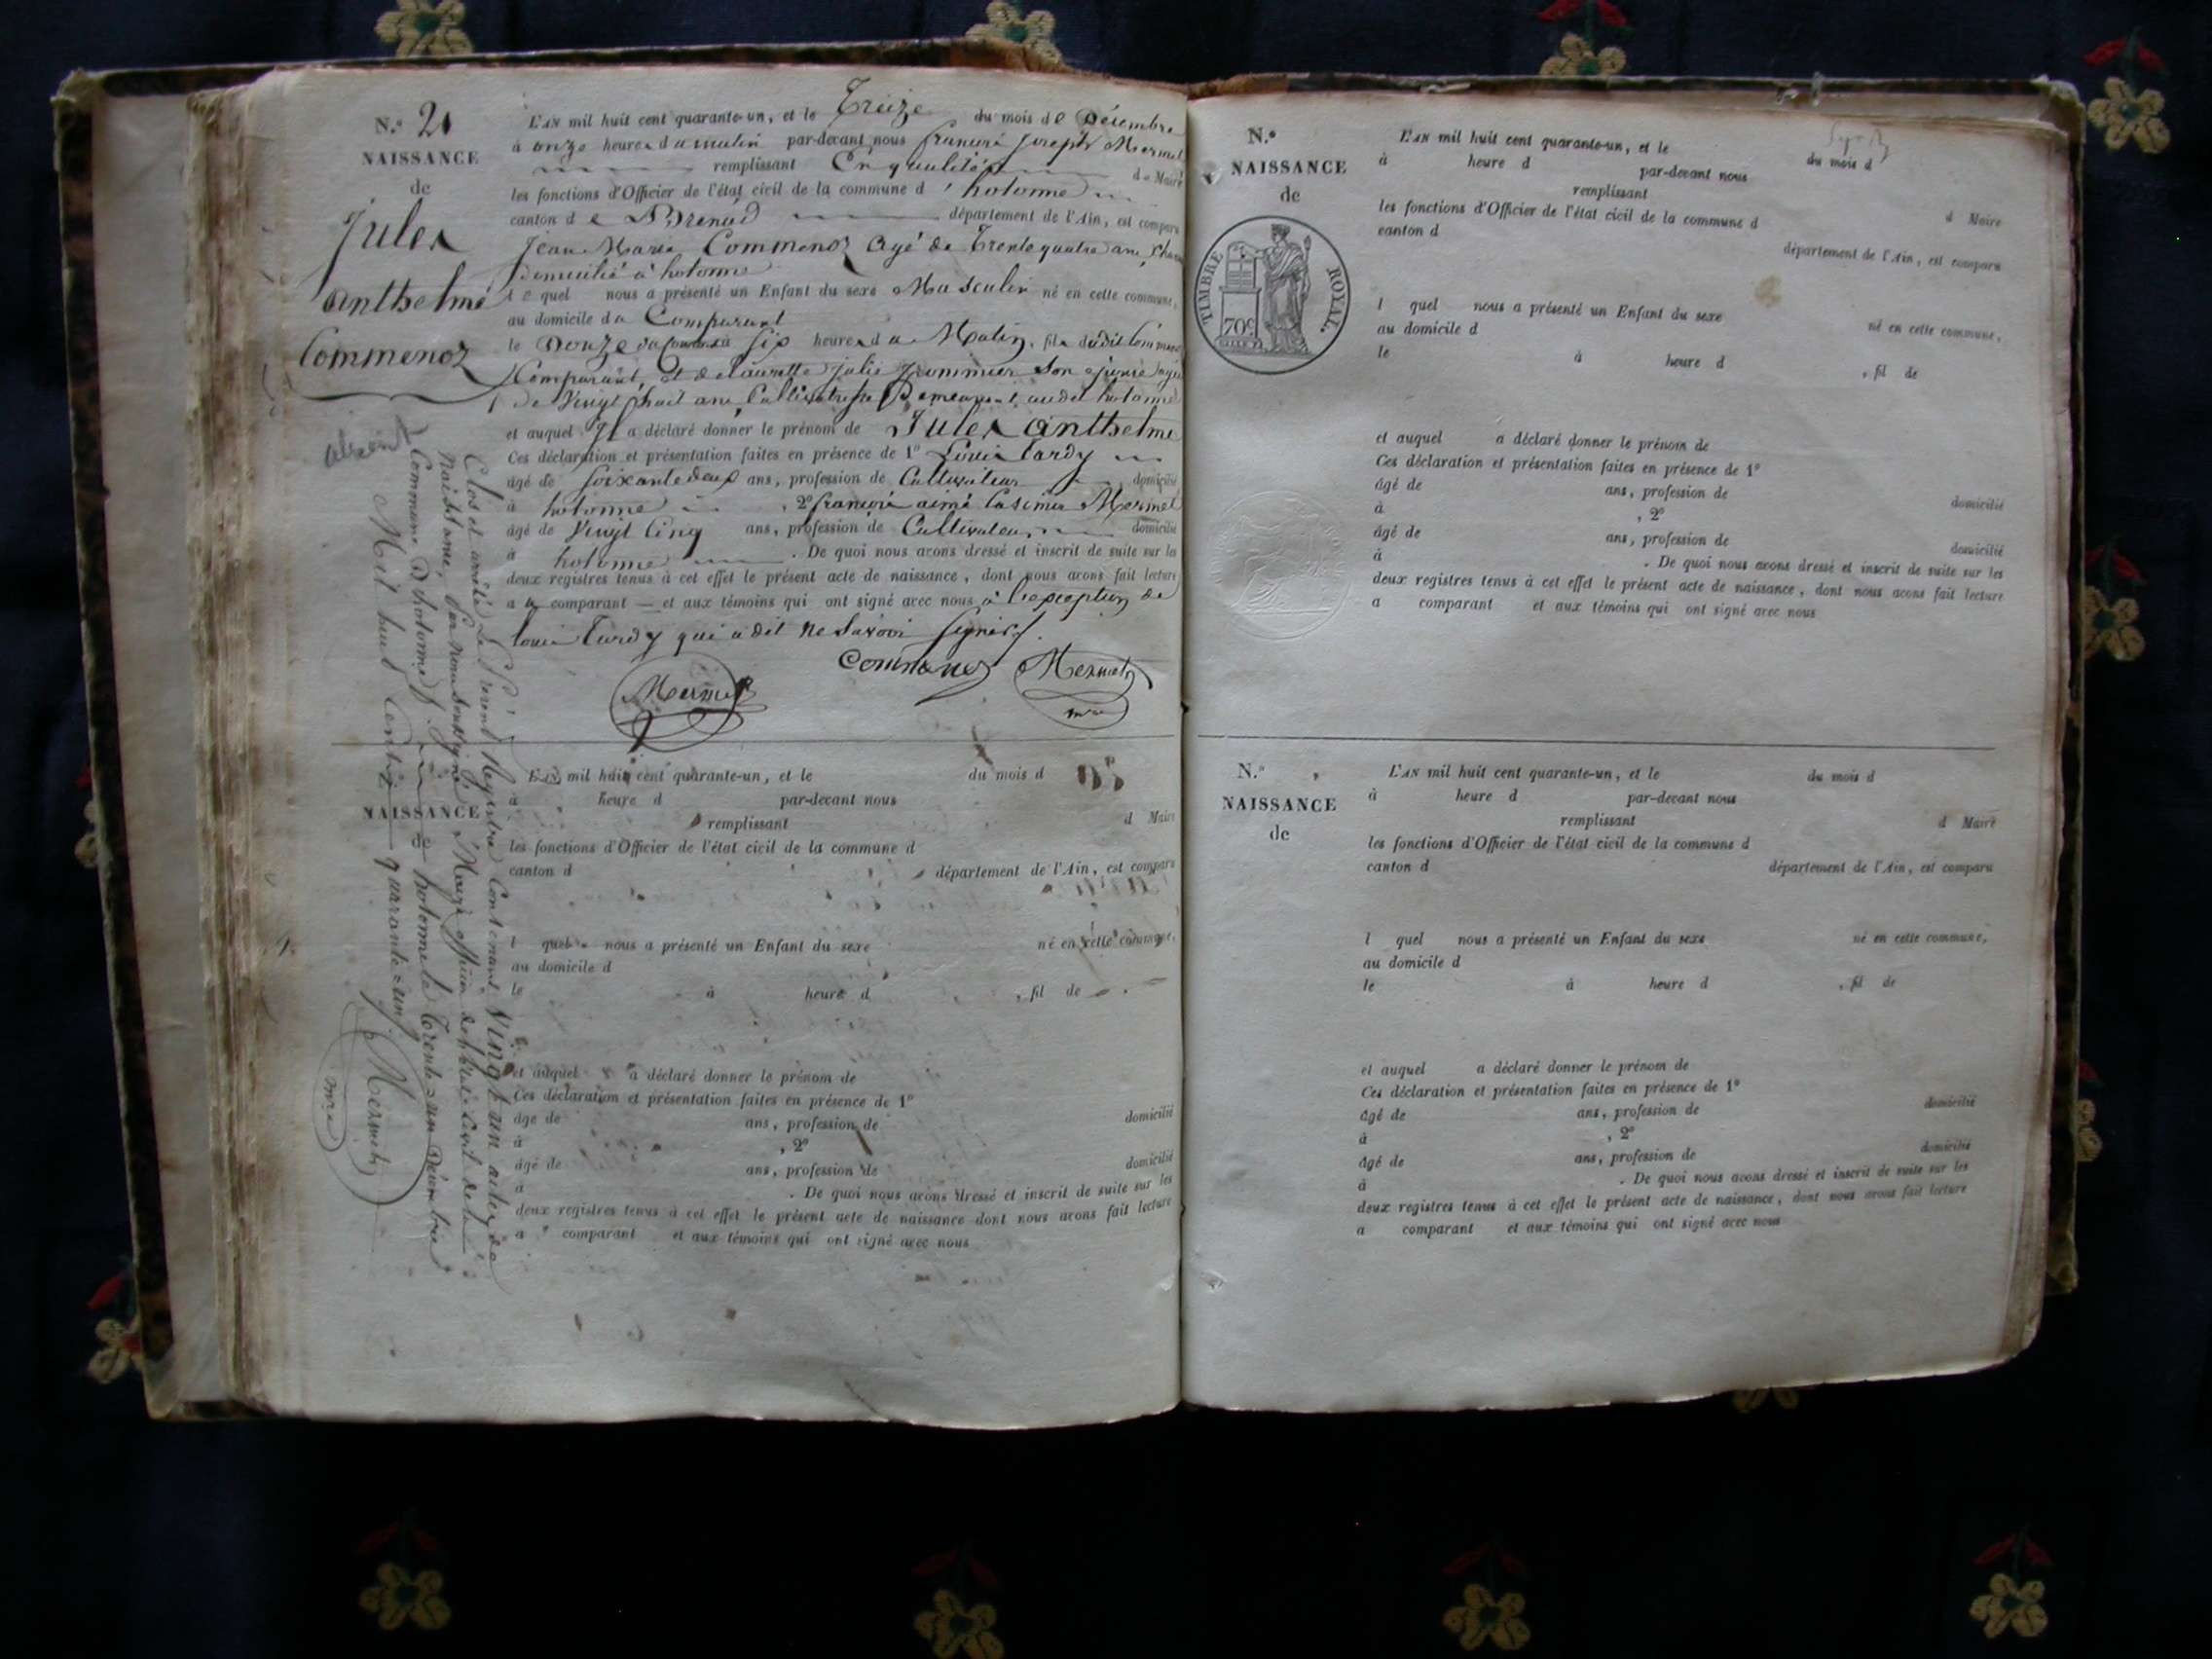 N.º 21
NAISSANCE
de
Jules
Anthelme
Commenoz
L'AN mil huit cent quarante-un, et le Treize du mois de Décembre
à onze heures du matin par-devant nous françois joseph Mermet
remplissant En qualité de Maire
les fonctions d'Officier de l'état civil de la commune d'hotonne
canton de Brenod département de l'Ain, est comparu
Jean Marie Commenoz agé de Trente quatre ans,
Domicilié à hotonne
lequel nous a présenté un Enfant du sexe Masculin né en cette commune,
au domicile du Comparant
le Douze du Courant à six heures du Matin, fils dudit Commenoz
Comparant, et de laurette julie son épouse agée
De Vingt huit ans, Cultivatrice Demeurant audit hotonne
et auquel Il a déclaré donner le prénom de Jules anthelme
Ces déclaration et présentation faites en présence de 1º Louis tardy
âgé de soixante deux ans, profession de Cultivateur domicilié
à hotonne , 2º françois aimé Casimir Mermet
âgé de Vingt Cinq ans, profession de Cultivateur domicilié
à hotonne . De quoi nous avons dressé et inscrit de suite sur les
deux registres tenus à cet effet le présent acte de naissance, dont nous avons fait lecture
au comparant et aux témoins qui ont signé avec nous à l'exception de
louis Tardy qui a dit ne savoir signer.
Mermet Commenoz Mermet
mre
Clos et arrêté Le présent Registre Contenant Vingt un actes de
Naissance, Par Nous soussigné Maire officier de l'état Civil de la
Commune D'hotonne, à hotonne le trente un Décembre
Mil huit Cent quarante-un.
Mermet
mre
NAISSANCE
de
L'AN mil huit cent quarante-un, et le du mois d
à heure d par-devant nous
remplissant d Maire
les fonctions d'Officier de l'état civil de la commune d
canton d département de l'Ain, est comparu
l quel nous a présenté un Enfant du sexe né en cette commune,
au domicile d
le à heure d , fil de
et auquel a déclaré donner le prénom de
Ces déclaration et présentation faites en présence de 1º
âgé de ans, profession de domicilié
à , 2º
âgé de ans, profession de domicilié
à . De quoi nous avons dressé et inscrit de suite sur les
deux registres tenus à cet effet le présent acte de naissance dont nous avons fait lecture
a comparant et aux témoins qui ont signé avec nous
N.º
NAISSANCE
de
TIMBRE ROYAL.
70c
L'AN mil huit cent quarante-un, et le du mois d
à heure d par-devant nous
remplissant d Maire
les fonctions d'Officier de l'état civil de la commune d
canton d département de l'Ain, est comparu
l quel nous a présenté un Enfant du sexe né en cette commune,
au domicile d
le à heure d , fil de
et auquel a déclaré donner le prénom de
Ces déclaration et présentation faites en présence de 1º
âgé de ans, profession de domicilié
à , 2º
âgé de ans, profession de domicilié
à . De quoi nous avons dressé et inscrit de suite sur les
deux registres tenus à cet effet le présent acte de naissance, dont nous avons fait lecture
a comparant et aux témoins qui ont signé avec nous
N.º
NAISSANCE
de
L'AN mil huit cent quarante-un, et le du mois d
à heure d par-devant nous
remplissant d Maire
les fonctions d'Officier de l'état civil de la commune d
canton d département de l'Ain, est comparu
l quel nous a présenté un Enfant du sexe né en cette commune,
au domicile d
le à heure d , fil de
et auquel a déclaré donner le prénom de
Ces déclaration et présentation faites en présence de 1º
âgé de ans, profession de domicilié
à , 2º
âgé de ans, profession de domicilié
à . De quoi nous avons dressé et inscrit de suite sur les
deux registres tenus à cet effet le présent acte de naissance, dont nous avons fait lecture
a comparant et aux témoins qui ont signé avec nous